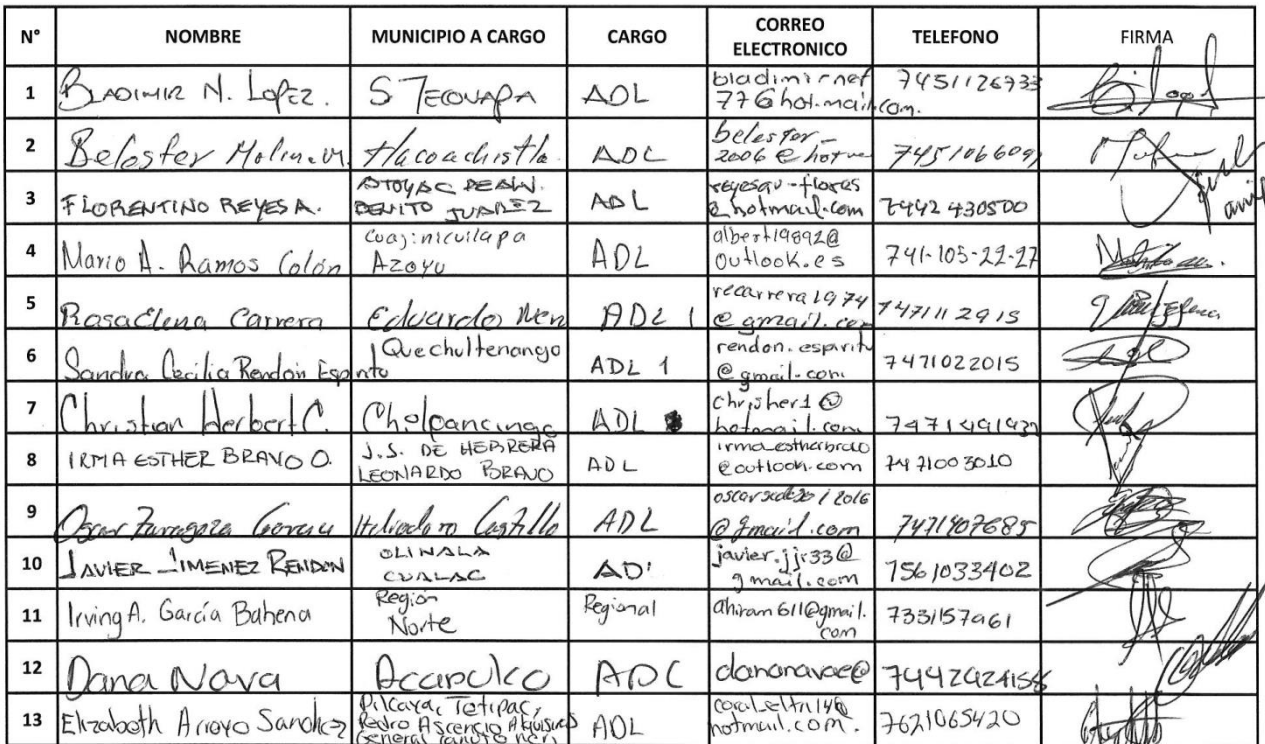 N° NOMBRE MUNICIPIO A CARGO CARGO CORREO ELECTRONICO TELEFONO FIRMA
1 BLADIMIR N. LOPEZ. S TECOUAPA ADL bladimirnef
77@hot.mail.com. 7451126733
2 Belester Molina.M. tlacoachistla. ADL belester_
2006@hotm 745106609
3 FLORENTINO REYES A. ATOYAC DE ALV.
BENITO JUAREZ ADL reyesav-flores
@hotmail.com 7442430500
4 Mario A. Ramos Colón Cuajinicuilapa
Azoyu ADL albert19892@
outlook.es 741-105-22-27
5 Rosa Elena Carrera Eduardo Neri ADL 1 recarrera1974
@gmail.com 7471112915
6 Sandra Cecilia Rendón Espiritu Quechultenango ADL 1 rendon.espiritu
@gmail.com 7471022015
7 Christian Herbert C. Chilpancingo ADL chrisher1@
hotmail.com
8 IRMA ESTHER BRAVO O. J.S. DE HERRERA
LEONARDO BRAVO ADL irma_estherbravo
@outlook.com 7471003010
9 Oscar Zaragoza Heliodoro Castillo ADL
@gmail.com 7471907685
10 JAVIER JIMENEZ RENDON OLINALA
CUALAC AD javier.jjr33@
gmail.com 7561033402
11 Irving A. García Bahena Región
Norte Regional ahiram611@gmail.
com 7331157961
12 Dana Nava Acapulco ADL dananavae@
13 Elizabeth Arroyo Sanchez Pilcaya, Tetipac,
Pedro Ascencio Alquisiras
General Canuto Neri, ADL
hotmail.com. 7621065420